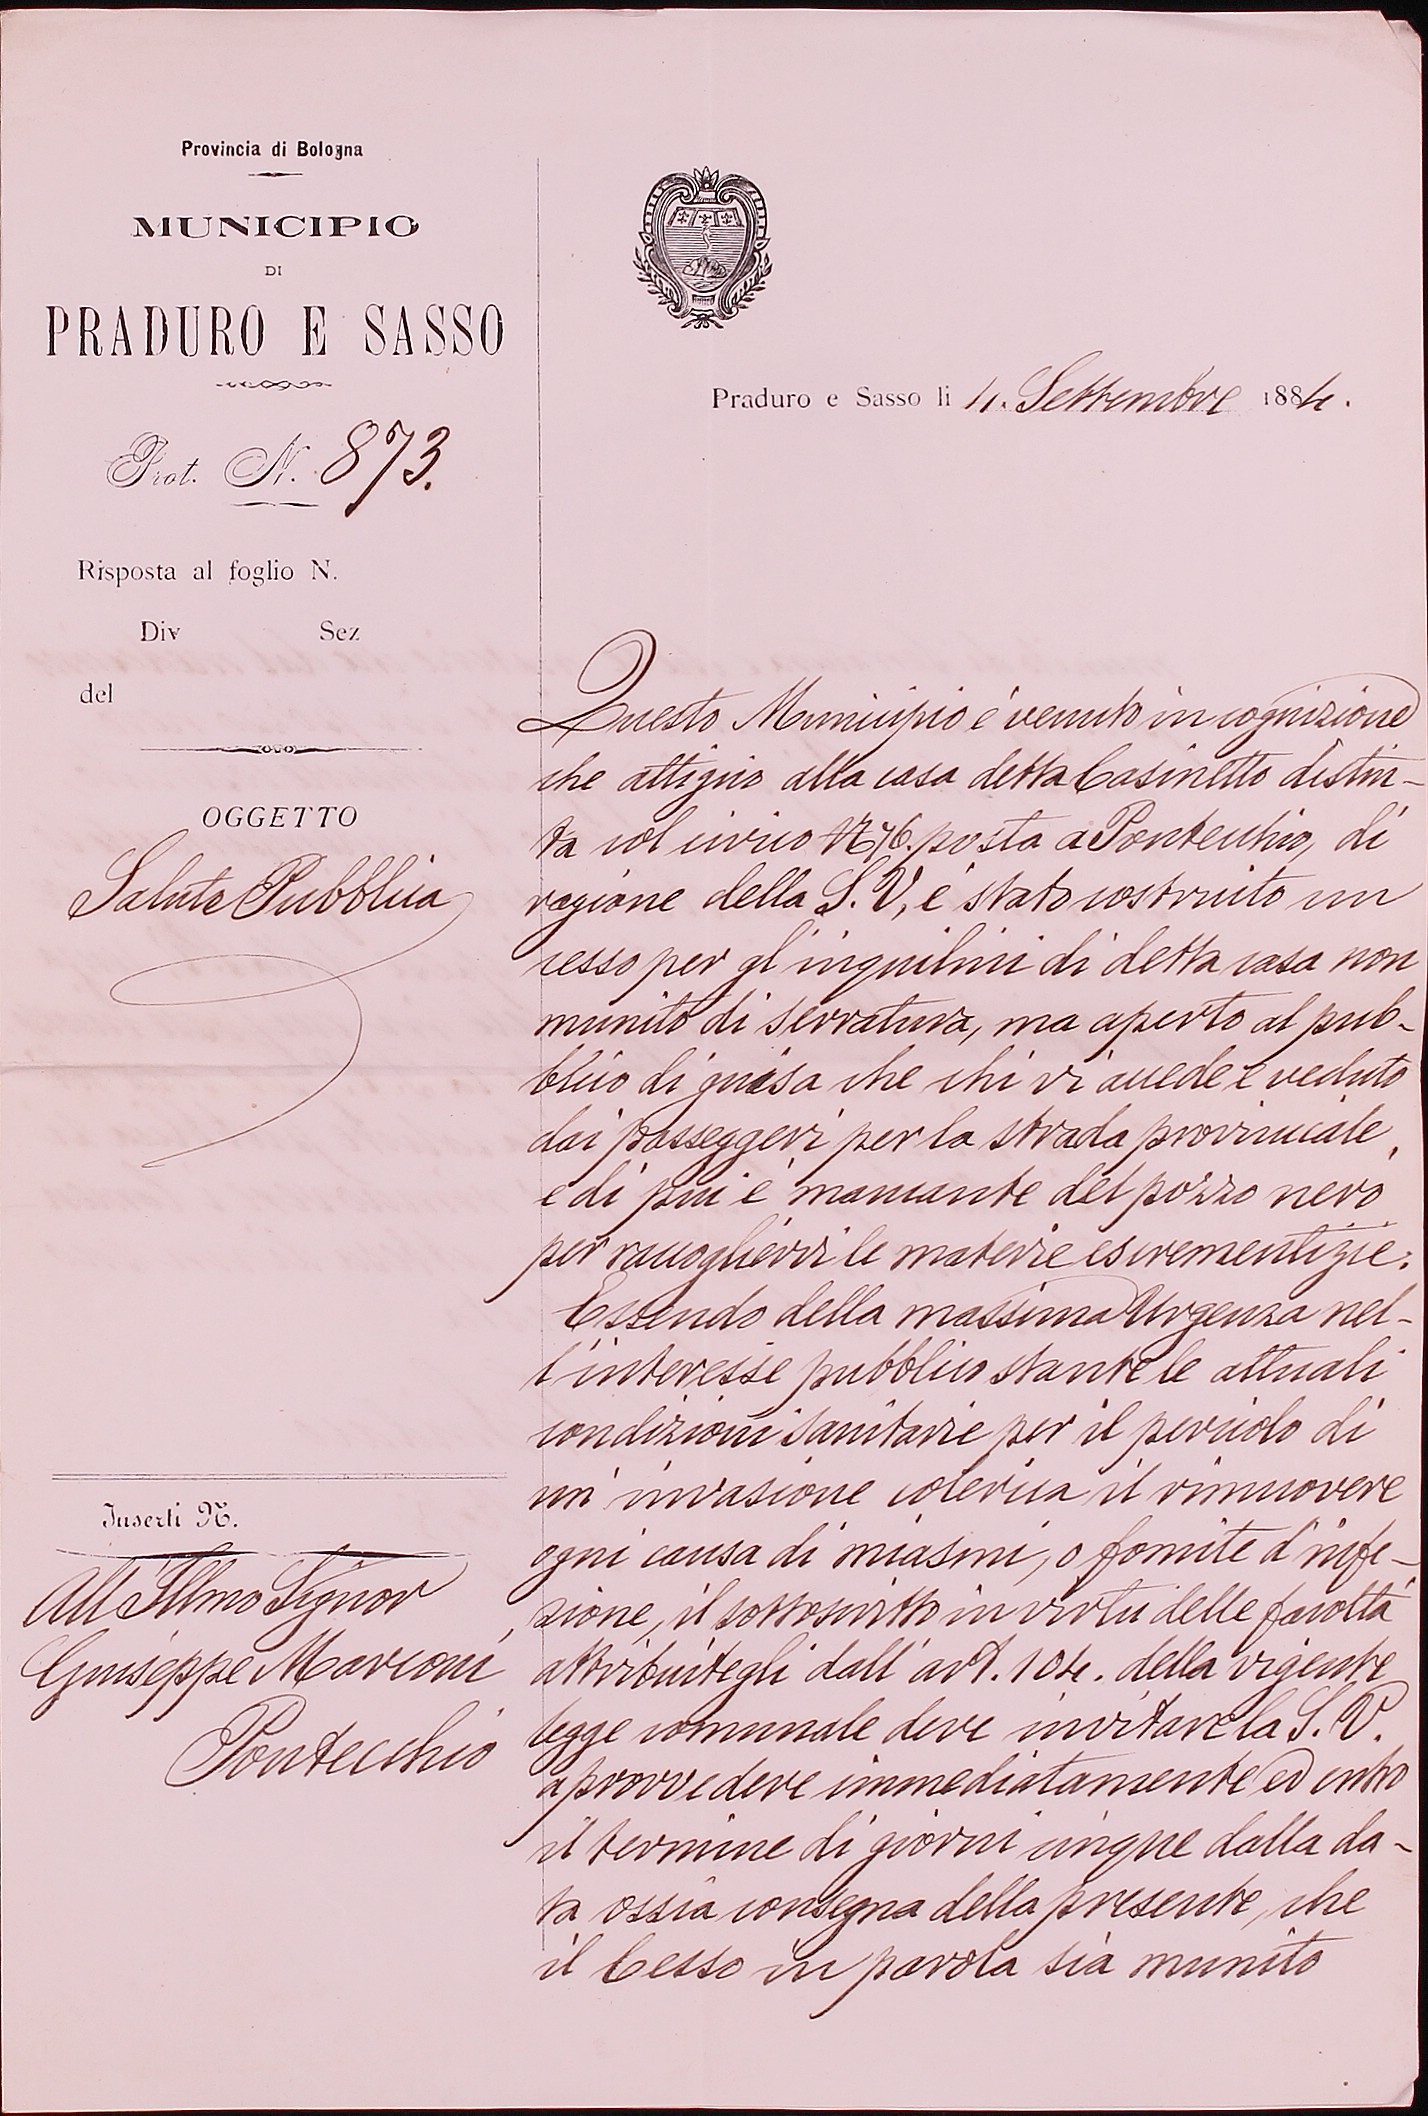 Provincia di Bologna
MUNICIPIO
DI
PRADURO E SASSO
Prot. N. 873.
Risposta al foglio N.
Div Sez
del
OGGETTO
Salute Pubblica
Inserti N.
All'Illmo Signor
Giuseppe Marconi
Pontecchio
Praduro e Sasso li Settembre 1884.
Questo Municipio è venuto in cognizione
che attiguo alla casa detta Casinetto distin-
ta col civico N 76. posta a Pontecchio, di
ragione della S. V, è stato costruito un
cesso per gl'inquilini di detta casa non
munito di serratura, ma aperto al pub-
blico di guisa che chi vi accede è veduto
dai passeggeri per la strada provinciale,
e di più è mancante del pozzo nero
per raccogliervi le materie escrementizie.
Essendo della massima Urgenza nel-
l'interesse pubblico stante le attuali
condizioni sanitarie per il pericolo di
un'invasione colerica il rimuovere
ogni causa di miasmi, o fomite d'infe-
zione, il sottoscritto in virtù delle facoltà
attribuitegli dall'art. 104. della vigente
legge comunale deve invitare la S. V.
a provvedere immediatamente ed entro
il termine di giorni cinque dalla da-
ta ossia consegna della presente, che
il Cesso in parola sia munito